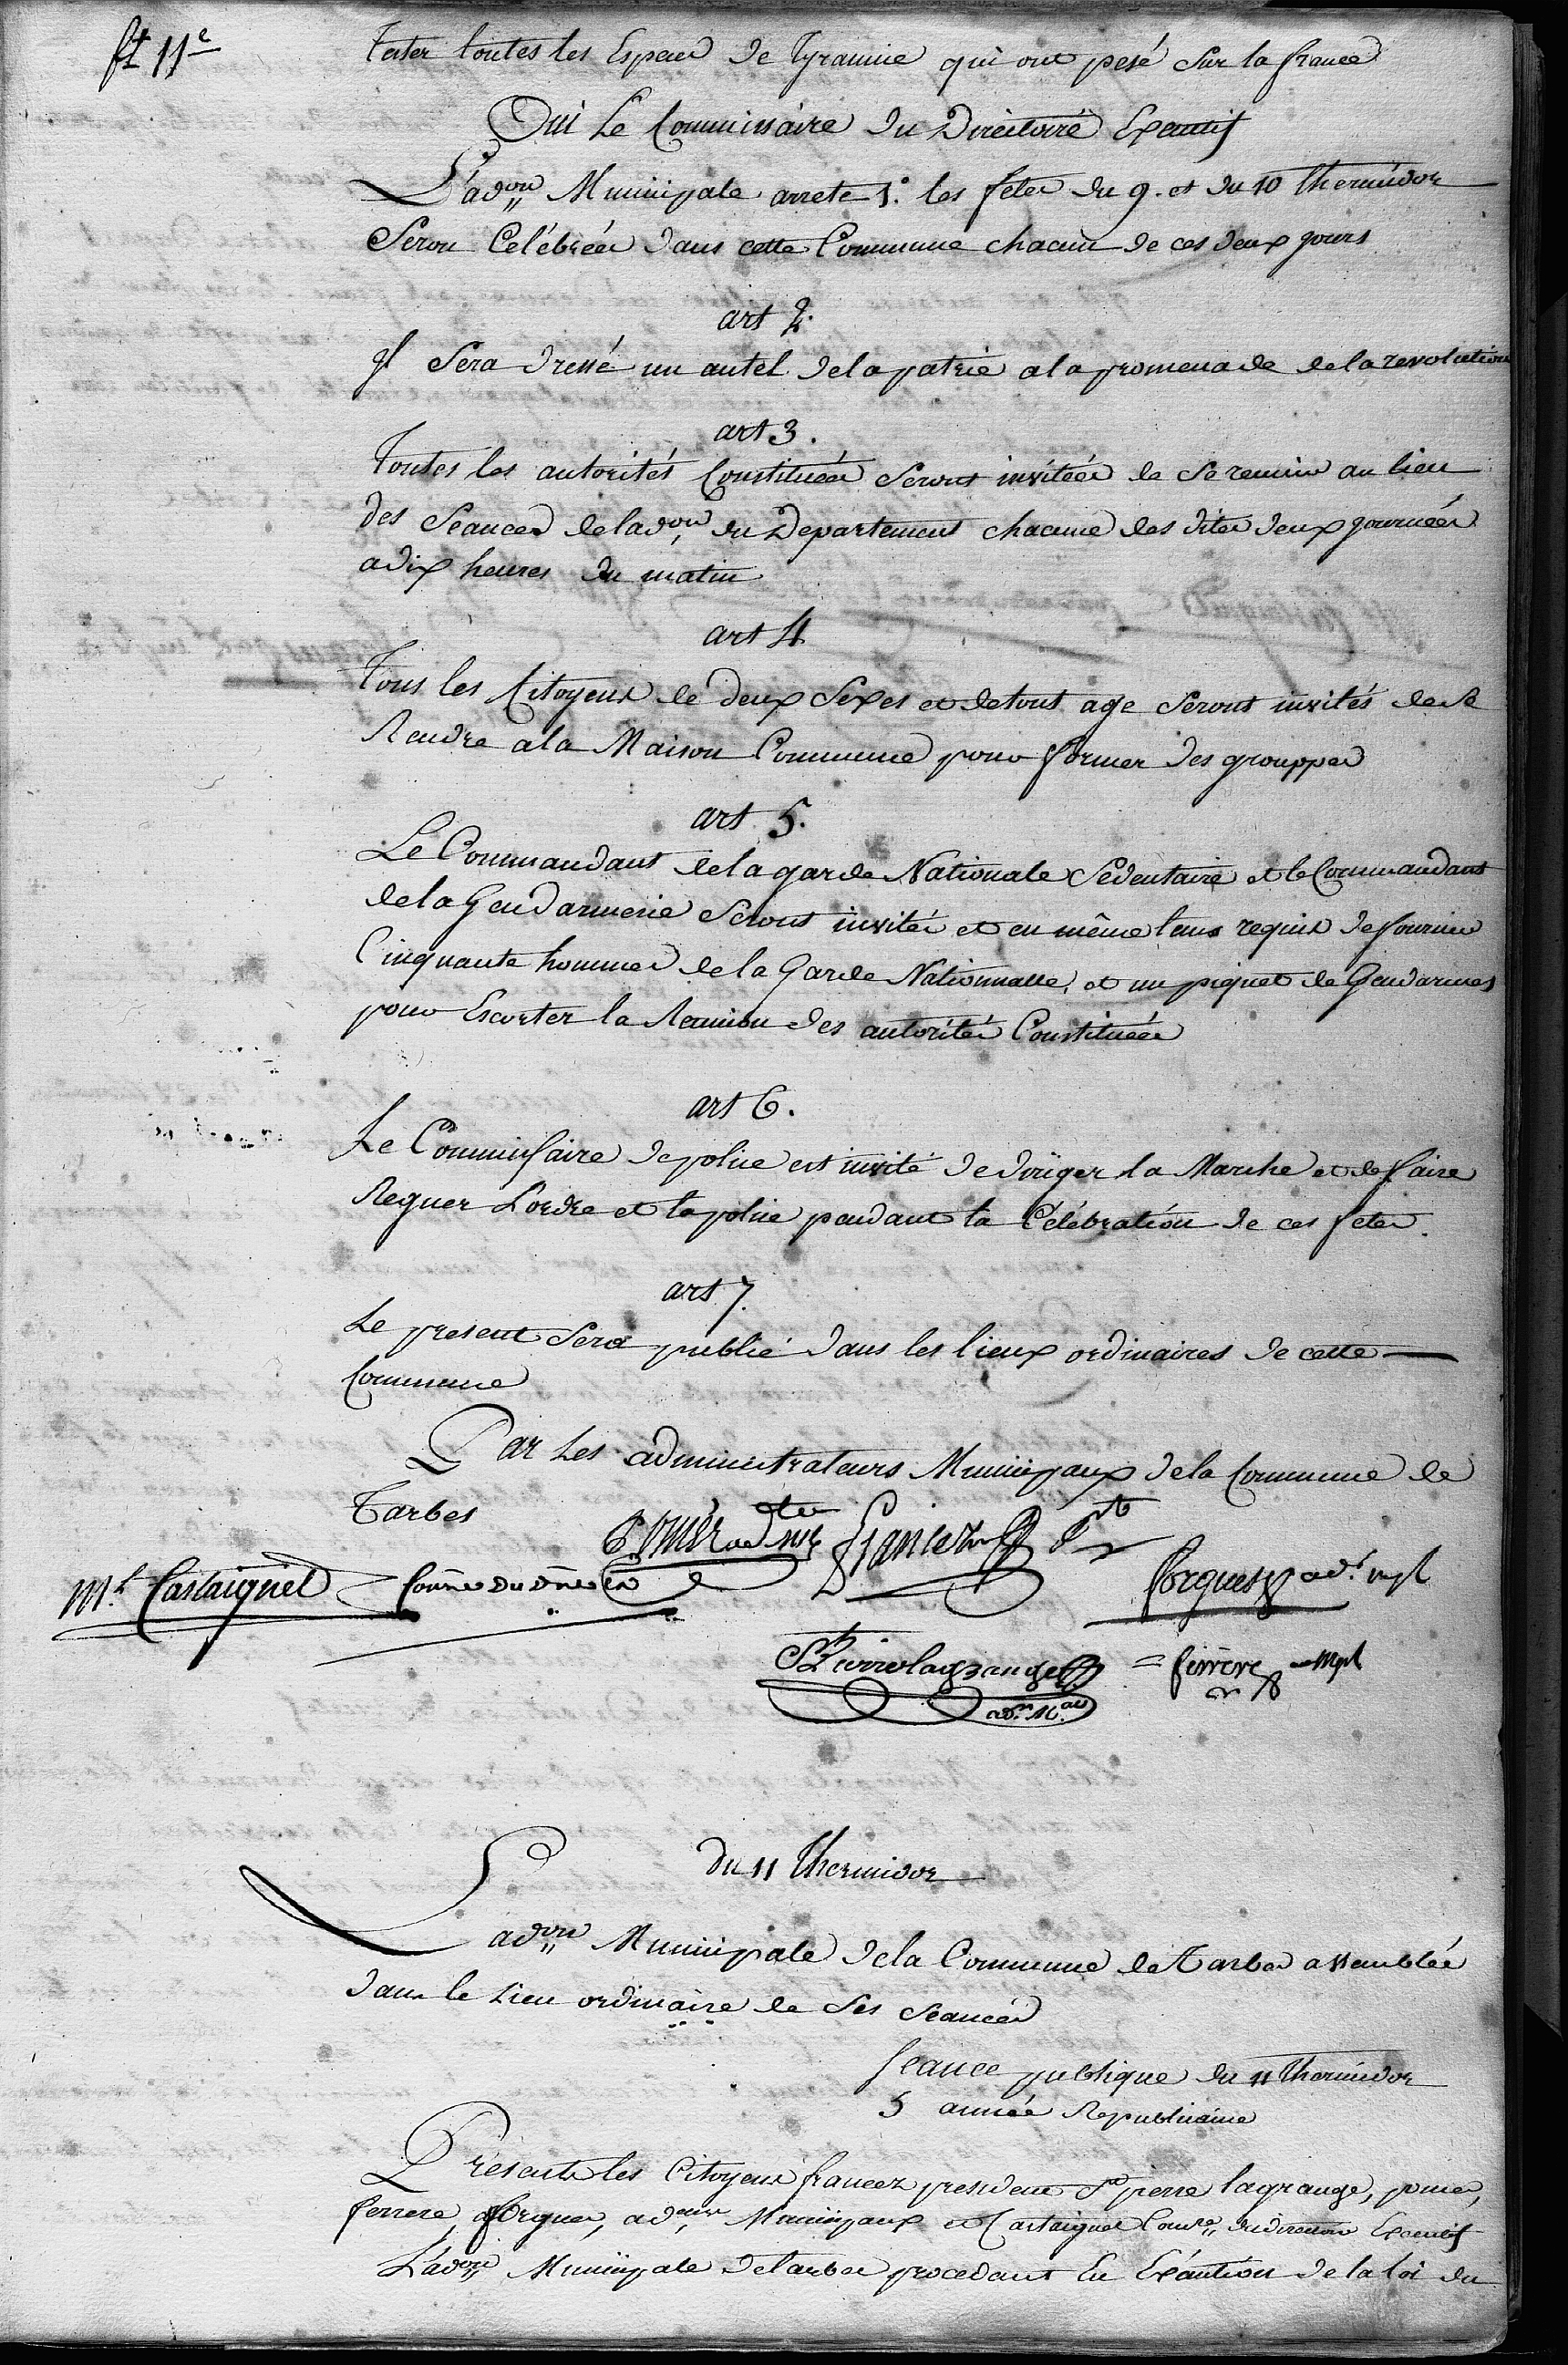 ft 11e
tester toutes les Especes de Tyrannie qui ont pesé Sur la france
Oui Le Commissaire du Directoire Executif
L'adon Municipale arrete 1.° les fetes du 9. et du 10 thermidor
Seron Celébrées dans cette Commune chacun de ces deux jours
art 2.
Il Sera dressé un autel dela patrie ala promenade dela revolution
art 3.
Toutes les autorités Constituées Seront invitées de Se reunir au lieu
des Seances deladon du Departement chacune des dites deux journées
adix heures du matin
art 4
Tous les Citoyens de deux Sexes et detout age Seront invités de Se
Rendre ala Maison Commune pour former des grouppes
art 5.
Le Commandant dela garde Nationale Sédentaire et le Commandant
dela Gendarmerie Seront invités et en même tems requis de fournir
Cinquante hommes de la Garde Nationnalle, et un piquet de Gendarmes
pour Escorter la Reunion des autorités Constituées
art 6.
Le Commissaire de police est invité de diriger la Marche et de faire
Regner L'ordre et la police pendant la Célébration de ces fetes.
art 7.
Le present Sera publié dans les lieux ordinaires de cette
Commune
Par Les administrateurs Municipaux dela Commune de
Tarbes
Mt. Castaignet
forgues adt. mpl
St pierrelagrange ferrere mpl
adr. Mal
du 11 Thermidor
L'adon Municipale dela Commune de Tarbes assemblée
dans le Lieu ordinaire de Ses Seances
Seance publique du 11 thermidor
5 année Republicaine
Présents les Citoyens francez president St pierre lagrange,
ferrere, forgues, adeurs Municipaux et Castaignet Comre du directoire Executif
L'adon Municipale detarbes procedant En Exécution de la loi du